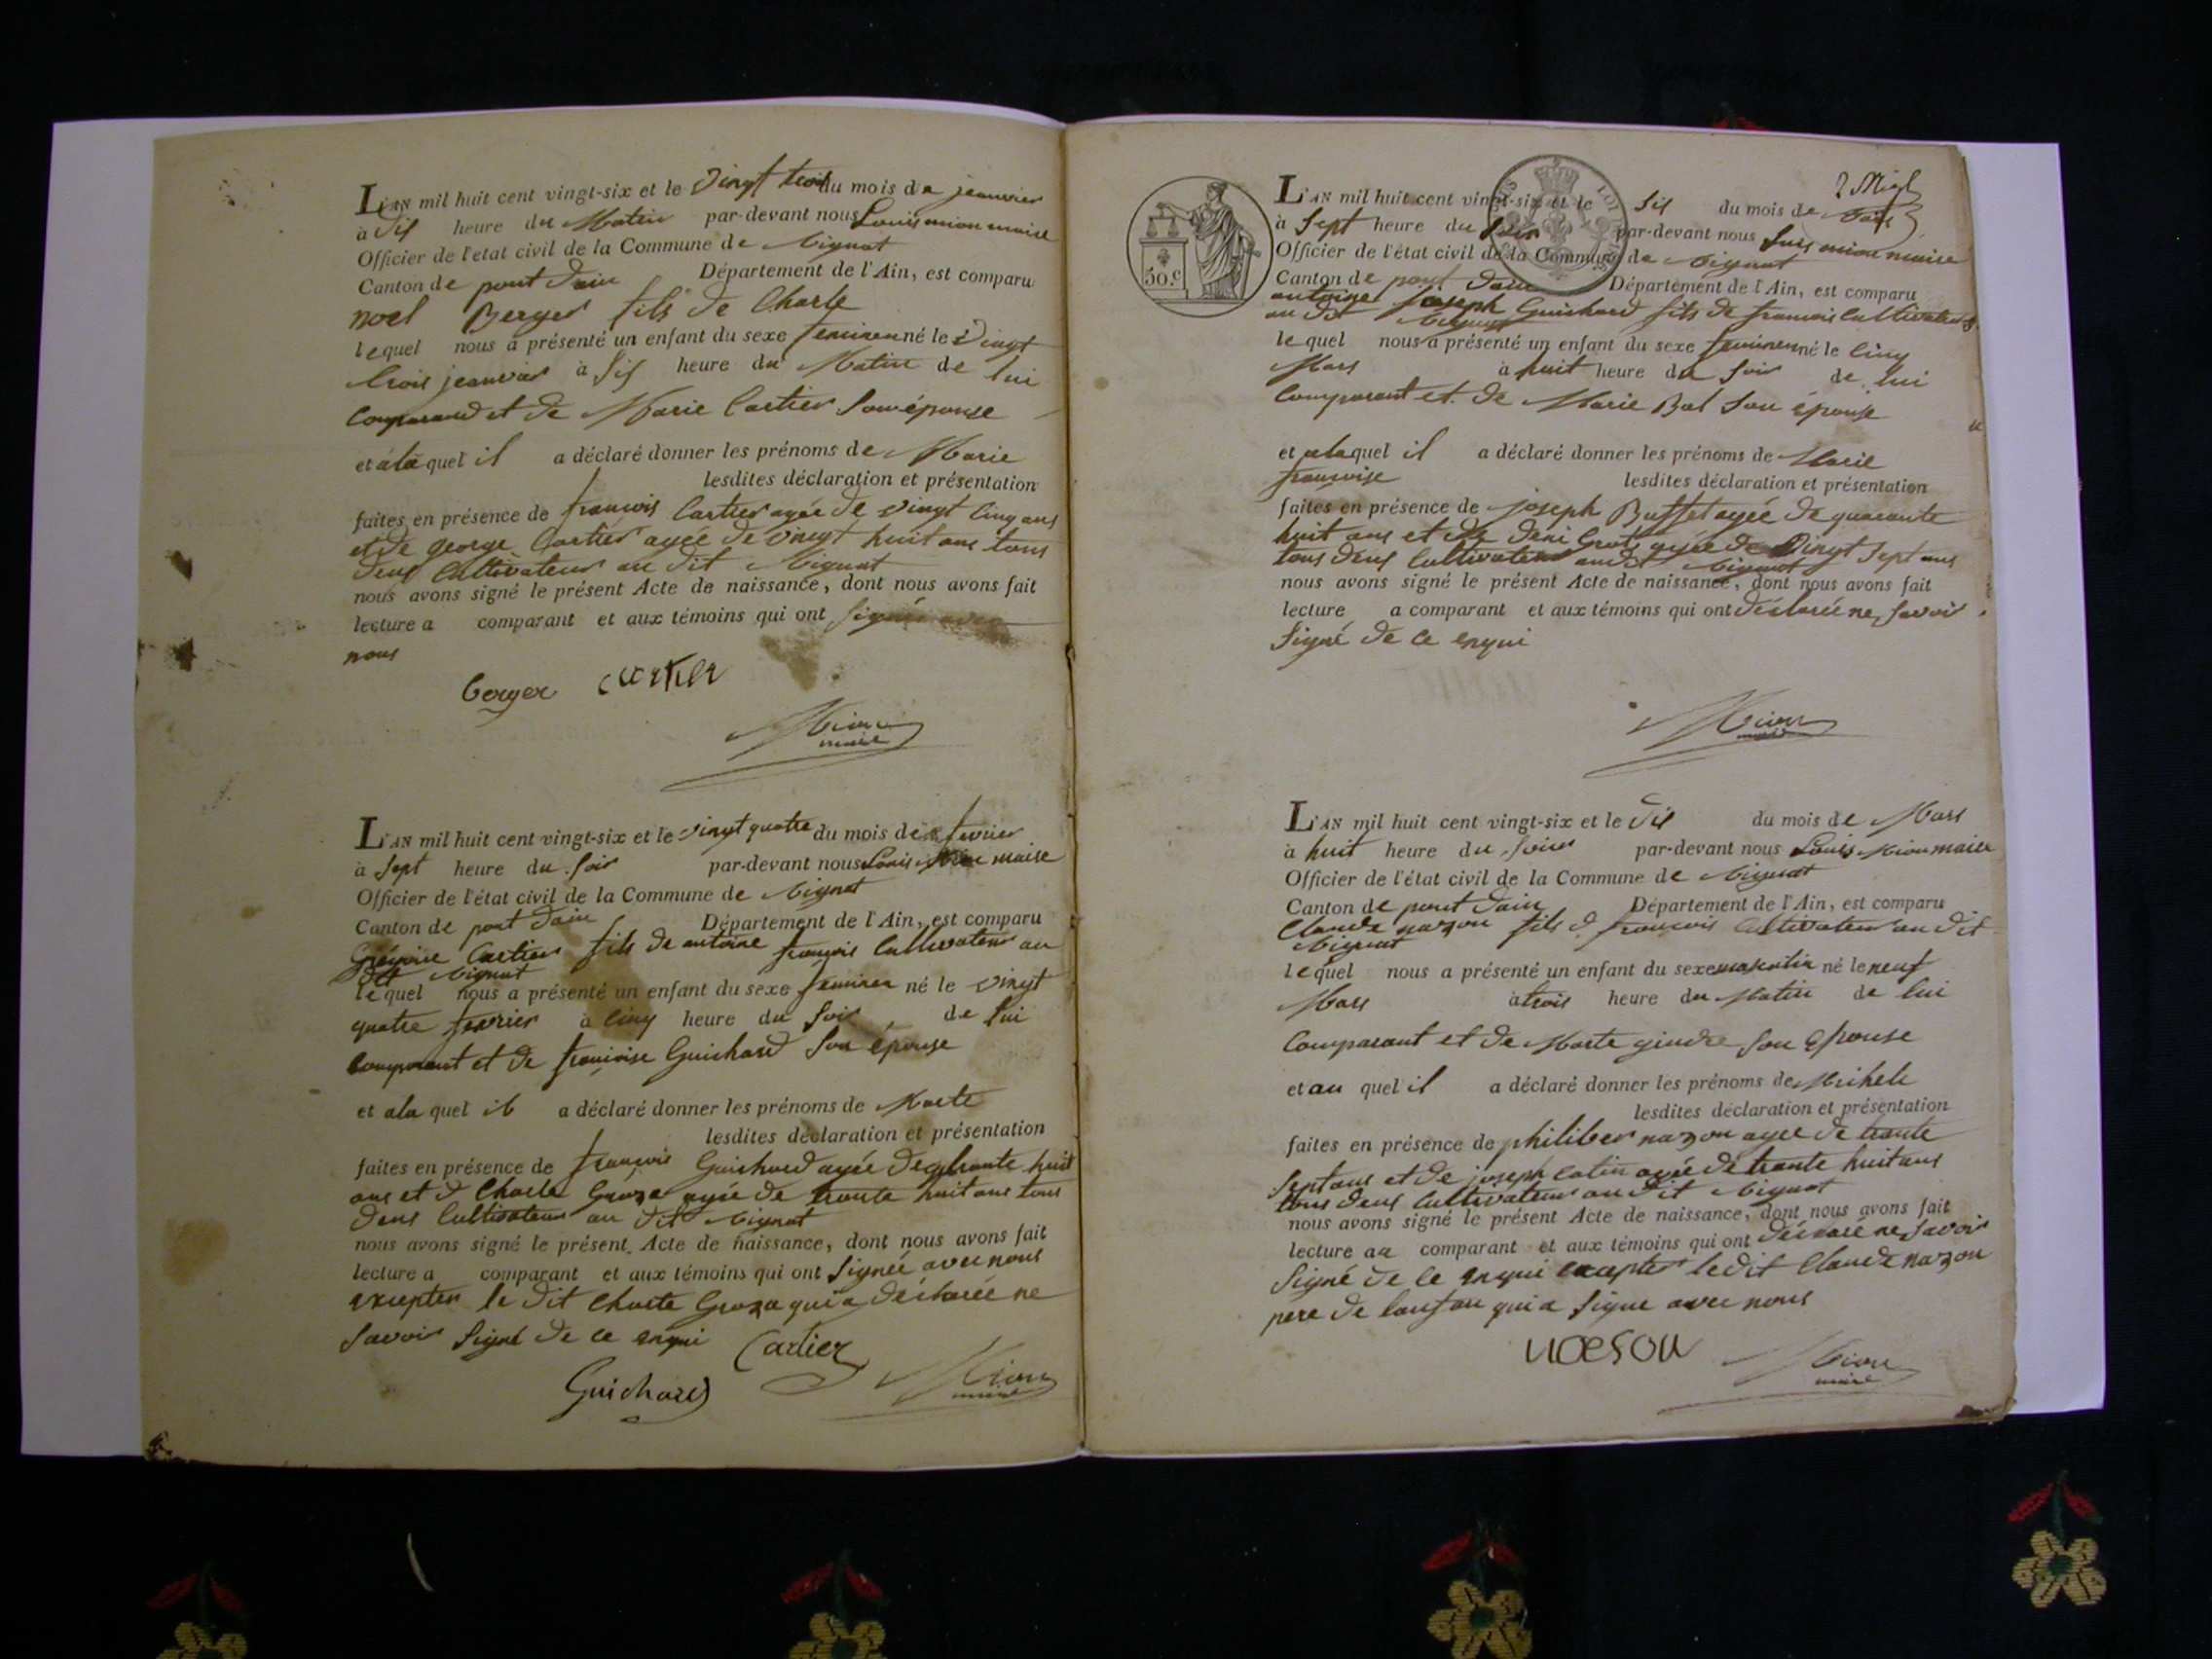 L'AN mil huit cent vingt-six et le vingt trois du mois de jeanvier
à dis heure du Matin par-devant nous Louis mion maire
Officier de l'état civil de la Commune de
Canton de pont dain Département de l'Ain, est comparu
noel Berger fils de Charle
lequel nous a présenté un enfant du sexe feminen né le vingt
trois jeanvier à sis heure du Matin de lui
Comparand et de Marie Cartier Son épouse
et a la quel il a déclaré donner les prénoms de Marie
lesdites déclaration et présentation
faites en présence de francois Cartier agée de vingt cinq ans
et de george Cartier agée de vingt huit ans tous
deus Cultivateur au dit
nous avons signé le présent Acte de naissance, dont nous avons fait
lecture a comparant et aux témoins qui ont signée avec
nous
berger cartier
Mion
maire
L'AN mil huit cent vingt-six et le vingt quatre du mois de fevrier
à sept heure du soir par-devant nous Louis Mion maire
Officier de l'état civil de la Commune de
Canton de pont dain Département de l'Ain, est comparu
Grégoire Cartier fils de antoine francois Cultivateur au
dit
lequel nous a présenté un enfant du sexe feminen né le vingt
quatre fevrier à cinq heure du soir de lui
Comparant et de francoise Guichard son épouse
et a la quel il a déclaré donner les prénoms de Marte
lesdites déclaration et présentation
faites en présence de francois Guichard agée de trante huit
ans et d Charle Groza agée de trante huit ans tous
deus Cultivateur au dit
nous avons signé le présent Acte de naissance, dont nous avons fait
lecture a comparant et aux témoins qui ont signée avec nous
excepter le dit Charle Groza qui a déclarée ne
savoir signé de ce enqui Cartier
Guichard Mion
maire
50.c
L'AN mil huit cent vingt-six et le sis du mois de Mars
à sept heure du soir par-devant nous Luis mion maire
Officier de l'état civil de la Commune de
Canton de pont dain Département de l'Ain, est comparu
antoine Joseph Guichard fils de francois Cultivateur
au dit
lequel nous a présenté un enfant du sexe feminen né le cinq
Mars à huit heure du soir de lui
Comparant et de Marie Bal son épouse
et a laquel il a déclaré donner les prénoms de Marie
francoise lesdites déclaration et présentation
faites en présence de joseph Buffet agée de quarante
huit ans et de deni agée de vingt sept ans
tous deus Cultivateur audit
nous avons signé le présent Acte de naissance, dont nous avons fait
lecture a comparant et aux témoins qui ont déclarée ne savoir
signé de ce enqui
Mion
maire
L'AN mil huit cent vingt-six et le dis du mois de Mars
à huit heure du soir par-devant nous Louis Mion maire
Officier de l'état civil de la Commune de
Canton de pont dain Département de l'Ain, est comparu
Claude nazon fils d francois Cultivateur au dit
lequel nous a présenté un enfant du sexe masculin né le neuf
Mars à trois heure du Matin de lui
Comparant et de Marte gindre son Epouse
et au quel il a déclaré donner les prénoms de Michele
lesdites déclaration et présentation
faites en présence de philiber nazon agée de trante
sept ans et de joseph catin agée de trante huit ans
tous deus Cultivateur au dit
nous avons signé le présent Acte de naissance, dont nous avons fait
lecture au comparant et aux témoins qui ont déclarée ne savoir
signé de ce enqui excepter ledit Claude nazon
pere de lanfan qui a signe avec nous
naeson Mion
maire